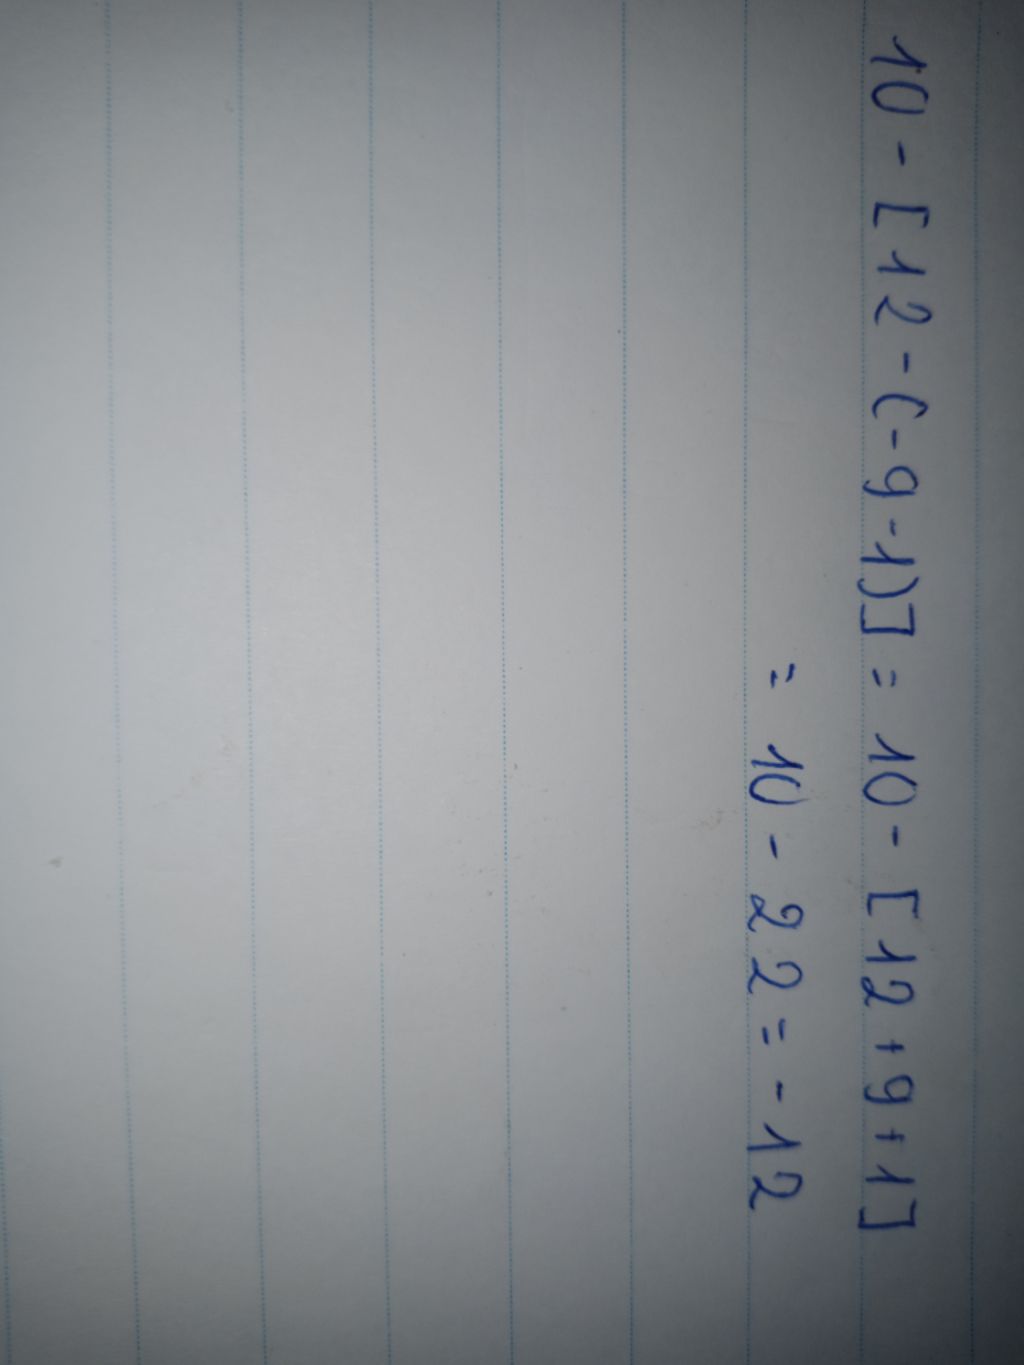 10 - [12 - (-9 - 1)] = 10 - [12 + 9 + 1]
= 10 - 22 = -12